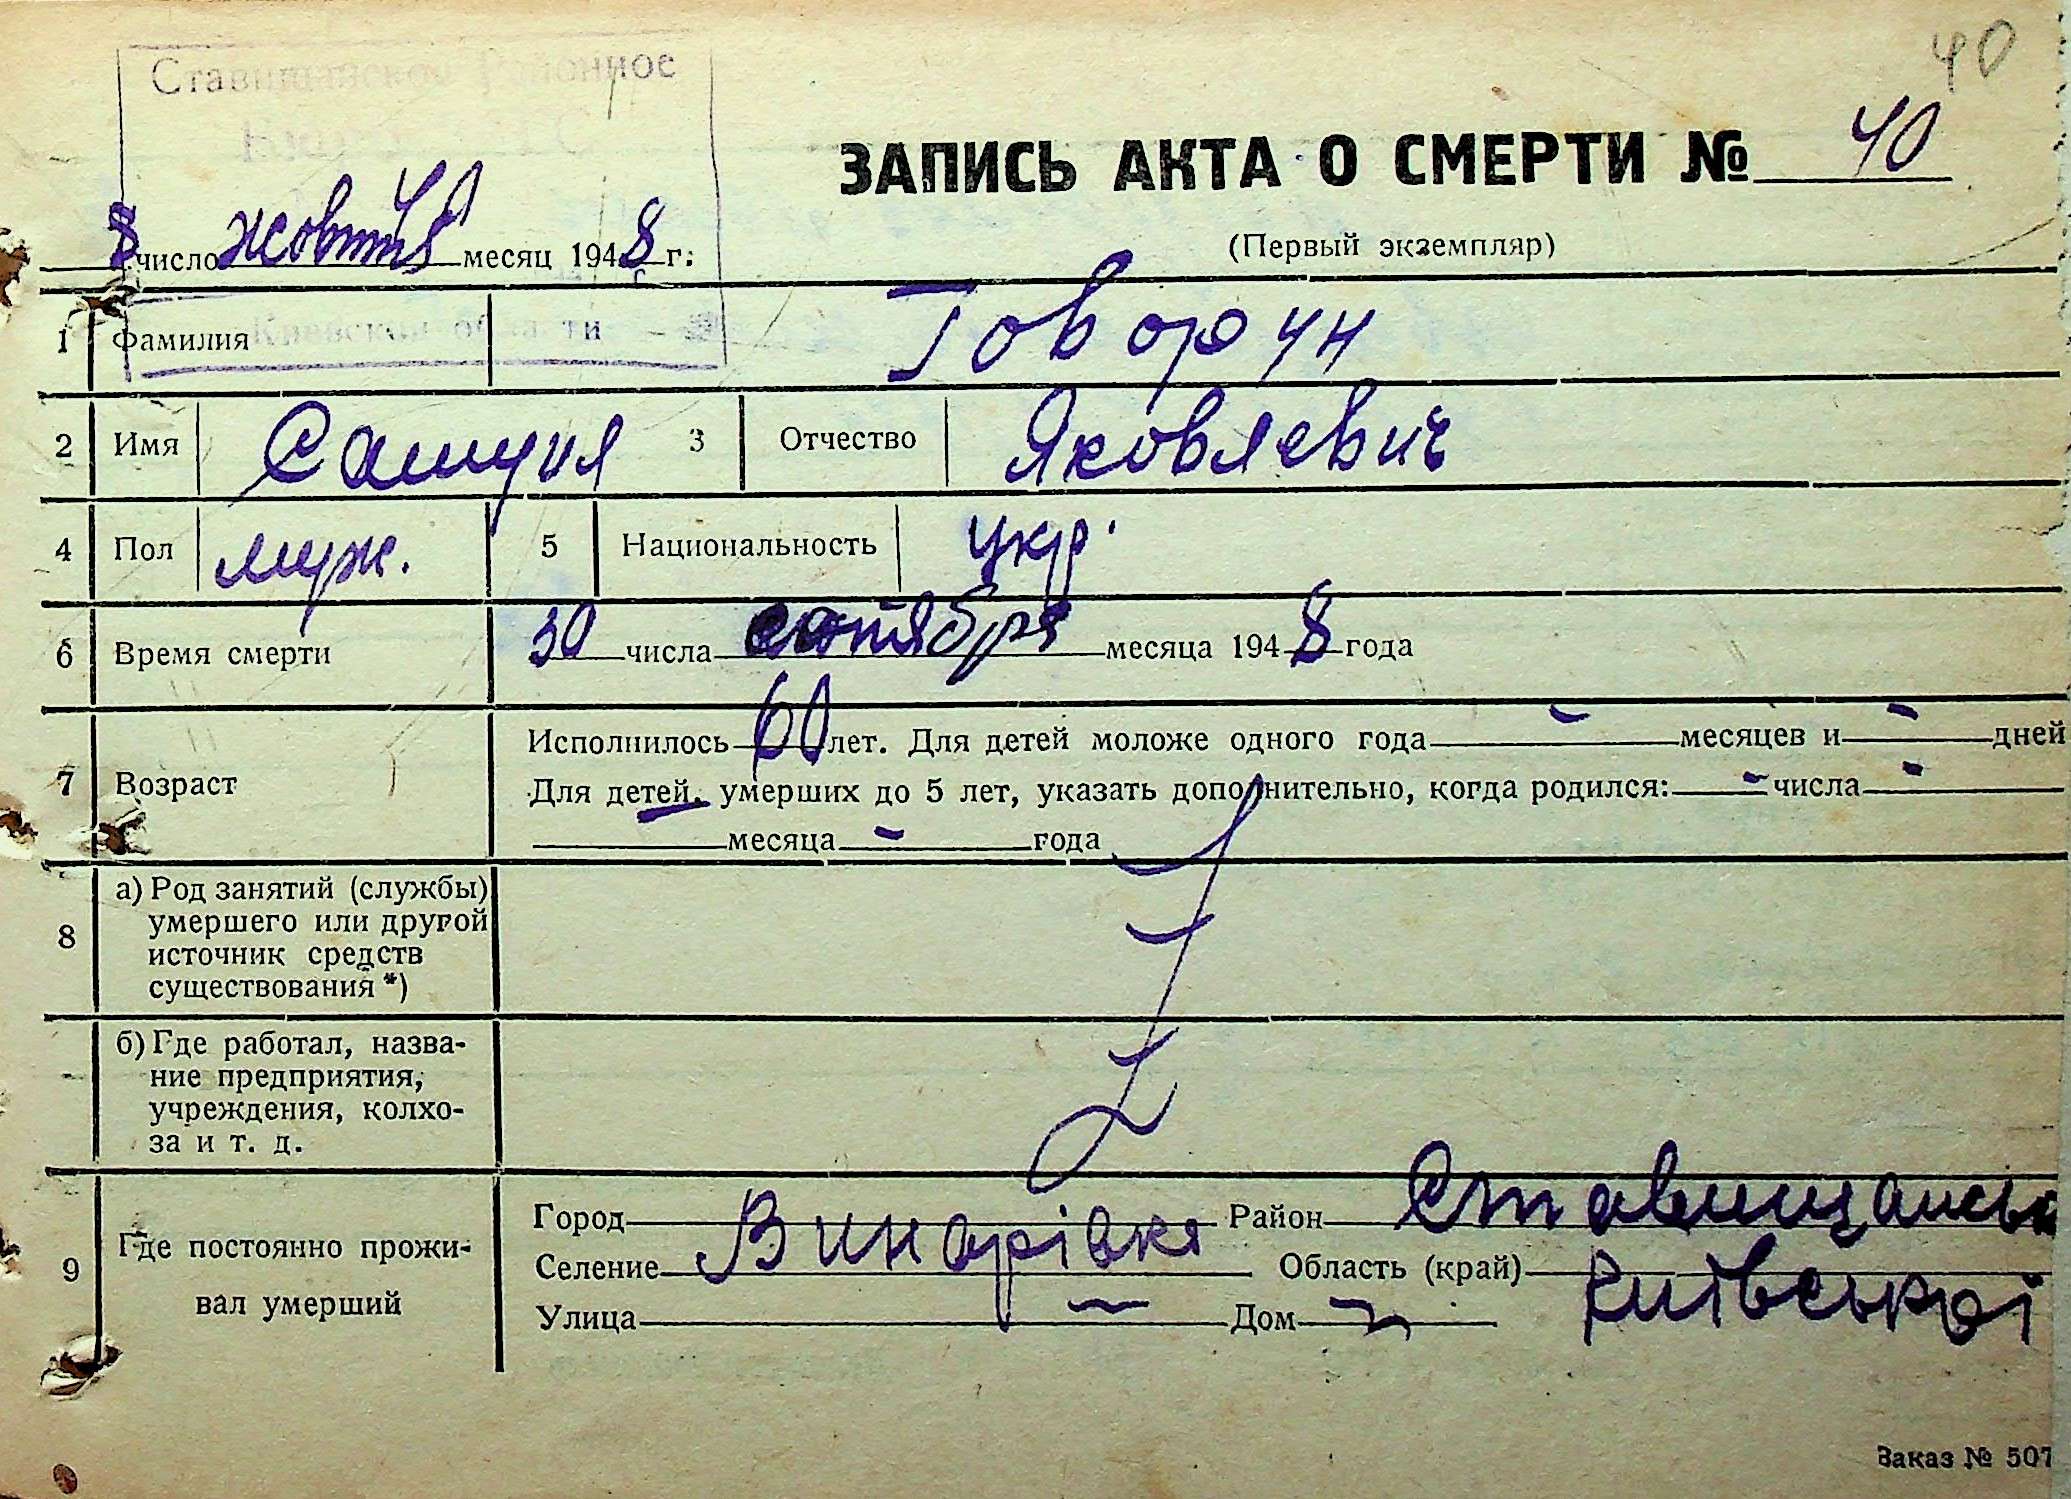 40
Ставищанское Районное
Киевской области
ЗАПИСЬ АКТА О СМЕРТИ № 40
8 число жовтня месяц 1948 г.
(Первый экземпляр)
1 Фамилия Говорун
2 Имя Самуил 3 Отчество Яковлевич
4 Пол муж. 5 Национальность укр.
6 Время смерти 30 числа сентября месяца 1948 года
7 Возраст Исполнилось 60 лет. Для детей моложе одного года - месяцев и - дней
Для детей, умерших до 5 лет, указать дополнительно, когда родился: - числа -
месяца - года
8 а) Род занятий (службы)
умершего или другой
источник средств
существования *)
б) Где работал, назва-
ние предприятия,
учреждения, колхо-
за и т. д.
9 Где постоянно прожи-
вал умерший
Город Район Ставищанськ
Селение Винарівка Область (край) Київської
Улица - Дом -
Заказ № 507